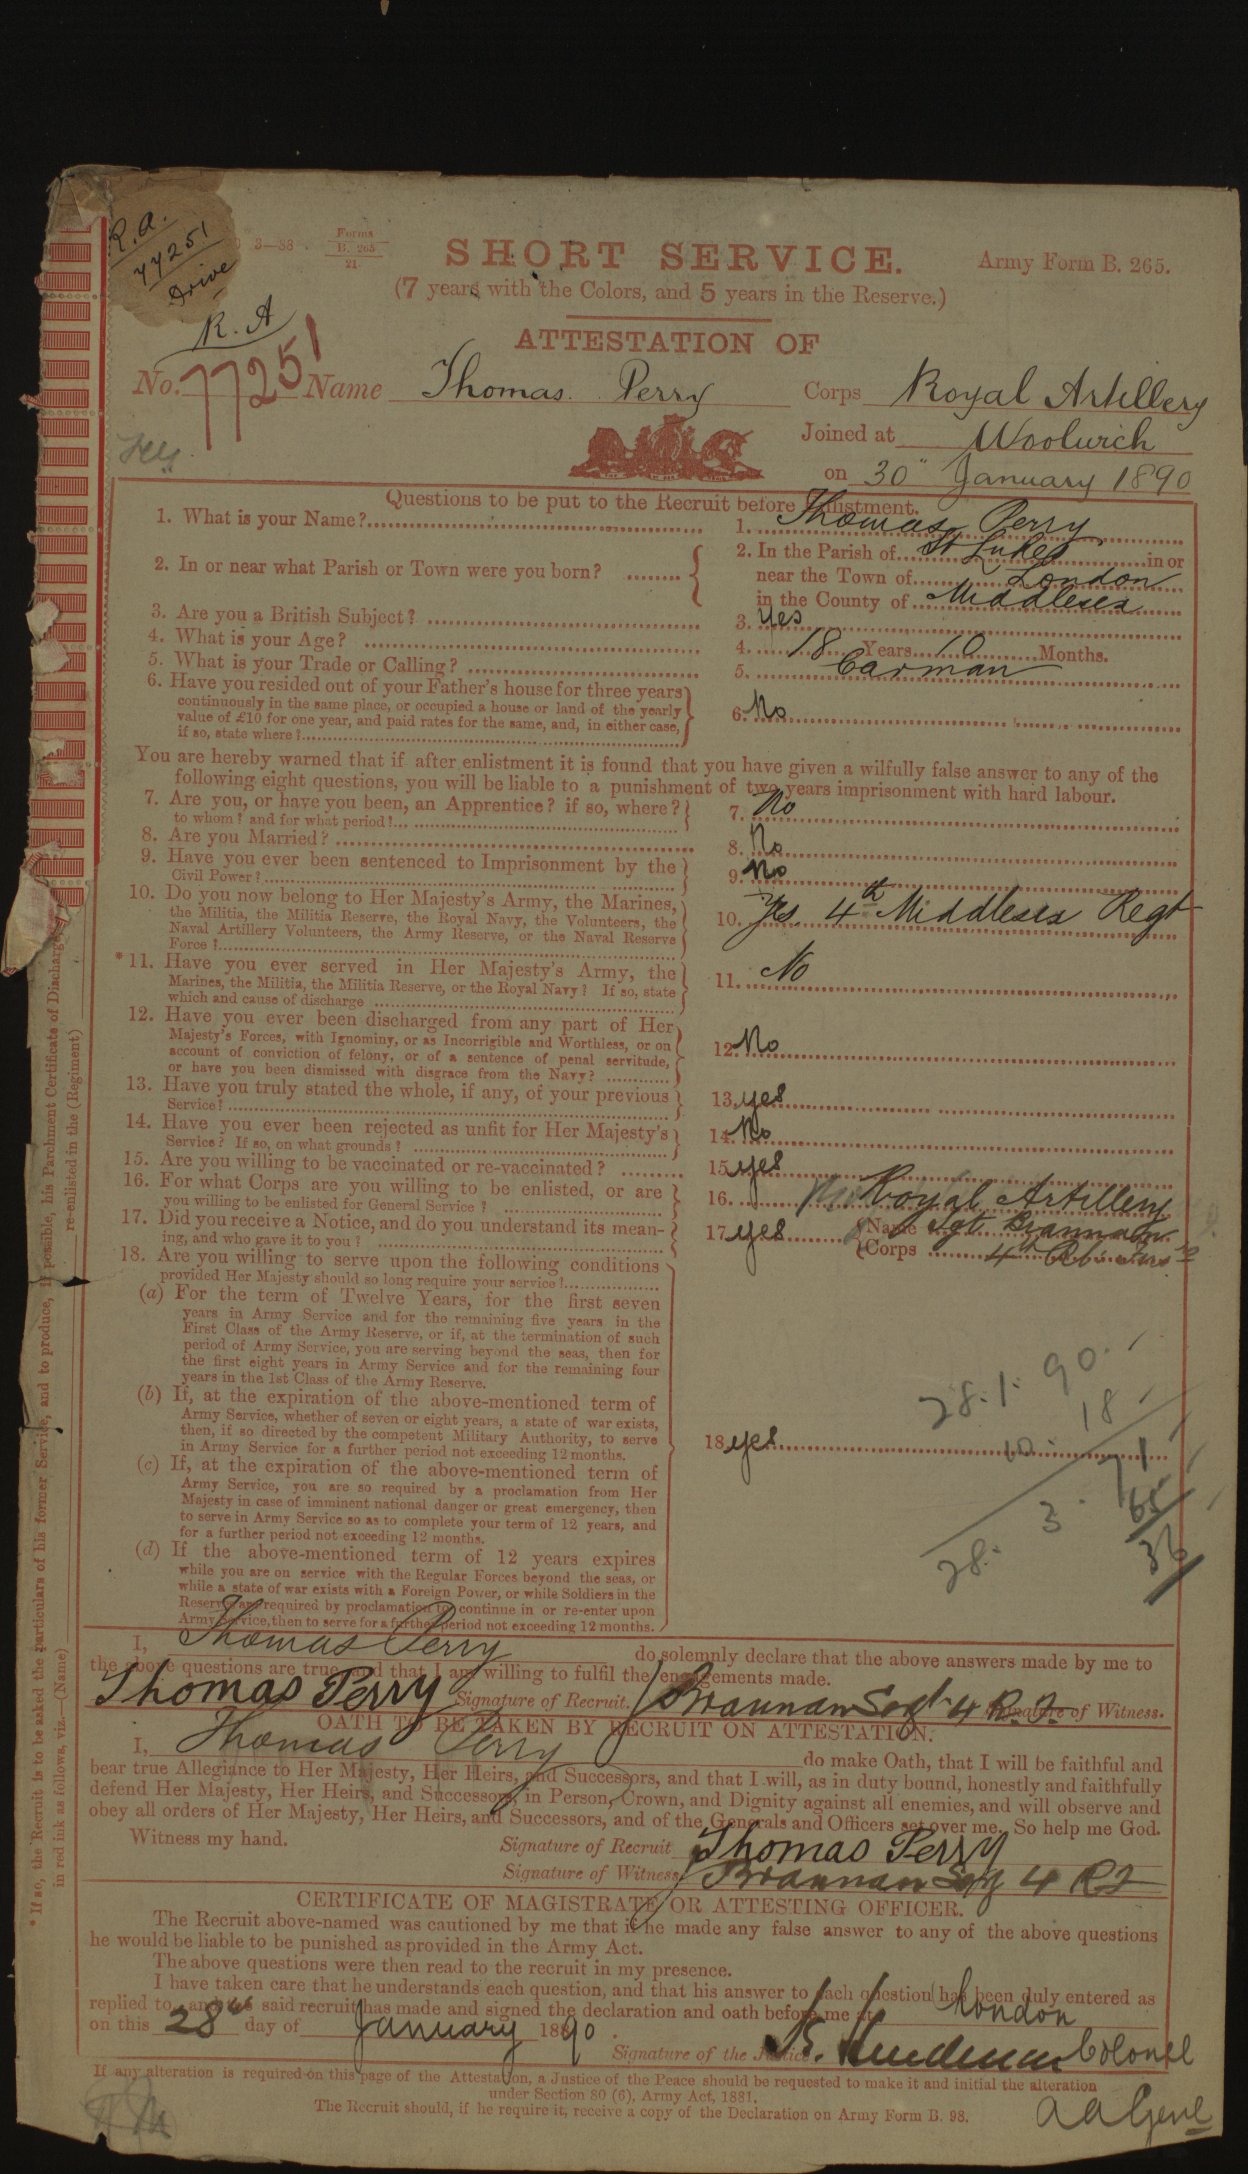 R.A.
77251
Drive
R.A
3—88
Forms
B. 265
21
SHORT SERVICE.
Army Form B. 265.
(7 years with the Colors, and 5 years in the Reserve.)
ATTESTATION OF
No. 77251 Name Thomas Perry Corps Royal Artillery
Joined at Woolwich
on 30" January 1890
Questions to be put to the Recruit before Enlistment.
1. What is your Name? 1. Thomas Perry
2. In or near what Parish or Town were you born? 2. In the Parish of St Lukes in or
near the Town of London
in the County of Middlesex
3. Are you a British Subject? 3. Yes
4. What is your Age? 4. 18 Years 10 Months.
5. What is your Trade or Calling? 5. Carman
6. Have you resided out of your Father's house for three years
continuously in the same place, or occupied a house or land of the yearly
value of £10 for one year, and paid rates for the same, and, in either case,
if so, state where? 6. No
You are hereby warned that if after enlistment it is found that you have given a wilfully false answer to any of the
following eight questions, you will be liable to a punishment of two years imprisonment with hard labour.
7. Are you, or have you been, an Apprentice? if so, where?
to whom? and for what period? 7. No
8. Are you Married? 8. No
9. Have you ever been sentenced to Imprisonment by the
Civil Power? 9. No
10. Do you now belong to Her Majesty's Army, the Marines,
the Militia, the Militia Reserve, the Royal Navy, the Volunteers, the
Naval Artillery Volunteers, the Army Reserve, or the Naval Reserve
Force? 10. Yes. 4th Middlesex Regt
*11. Have you ever served in Her Majesty's Army, the
Marines, the Militia, the Militia Reserve, or the Royal Navy? If so, state
which and cause of discharge 11. No
12. Have you ever been discharged from any part of Her
Majesty's Forces, with Ignominy, or as Incorrigible and Worthless, or on
account of conviction of felony, or of a sentence of penal servitude,
or have you been dismissed with disgrace from the Navy? 12. No
13. Have you truly stated the whole, if any, of your previous
Service? 13. yes
14. Have you ever been rejected as unfit for Her Majesty's
Service? If so, on what grounds? 14. No
15. Are you willing to be vaccinated or re-vaccinated? 15. yes
16. For what Corps are you willing to be enlisted, or are
you willing to be enlisted for General Service? 16. Royal Artillery
17. Did you receive a Notice, and do you understand its mean-
ing, and who gave it to you? 17. yes Name Sgt Brannan
Corps 4th
18. Are you willing to serve upon the following conditions
provided Her Majesty should so long require your service?
(a) For the term of Twelve Years, for the first seven
years in Army Service and for the remaining five years in the
First Class of the Army Reserve, or if, at the termination of such
period of Army Service, you are serving beyond the seas, then for
the first eight years in Army Service and for the remaining four
years in the 1st Class of the Army Reserve.
(b) If, at the expiration of the above-mentioned term of
Army Service, whether of seven or eight years, a state of war exists,
then, if so directed by the competent Military Authority, to serve
in Army Service for a further period not exceeding 12 months.
18. yes
(c) If, at the expiration of the above-mentioned term of
Army Service, you are so required by a proclamation from Her
Majesty in case of imminent national danger or great emergency, then
to serve in Army Service so as to complete your term of 12 years, and
for a further period not exceeding 12 months.
(d) If the above-mentioned term of 12 years expires
while you are on service with the Regular Forces beyond the seas, or
while a state of war exists with a Foreign Power, or while Soldiers in the
Reserve are required by proclamation to continue in or re-enter upon
Army Service, then to serve for a further period not exceeding 12 months.
28.1.90.
10. 18
28. 3. 71
65
36
I, Thomas Perry do solemnly declare that the above answers made by me to
the above questions are true, and that I am willing to fulfil the engagements made.
Thomas Perry Signature of Recruit. Brannan Sergt 4 R.F. Signature of Witness.
OATH TO BE TAKEN BY RECRUIT ON ATTESTATION.
I, Thomas Perry do make Oath, that I will be faithful and
bear true Allegiance to Her Majesty, Her Heirs, and Successors, and that I will, as in duty bound, honestly and faithfully
defend Her Majesty, Her Heirs, and Successors, in Person, Crown, and Dignity against all enemies, and will observe and
obey all orders of Her Majesty, Her Heirs, and Successors, and of the Generals and Officers set over me. So help me God.
Witness my hand. Signature of Recruit Thomas Perry
Signature of Witness Brannan Sergt 4 RF
CERTIFICATE OF MAGISTRATE OR ATTESTING OFFICER.
The Recruit above-named was cautioned by me that if he made any false answer to any of the above questions
he would be liable to be punished as provided in the Army Act.
The above questions were then read to the recruit in my presence.
I have taken care that he understands each question, and that his answer to each question has been duly entered as
replied to, and the said recruit has made and signed the declaration and oath before me at London
on this 28th day of January 1890.
Signature of the Justice Colonel
If any alteration is required on this page of the Attestation, a Justice of the Peace should be requested to make it and initial the alteration
under Section 80 (6), Army Act, 1881.
The Recruit should, if he require it, receive a copy of the Declaration on Army Form B. 98.
AAGenl
* If so, the Recruit is to be asked the particulars of his former Service, and to produce, if possible, his Parchment Certificate of Discharge
in red ink as follows, viz.—(Name) re-enlisted in the (Regiment)